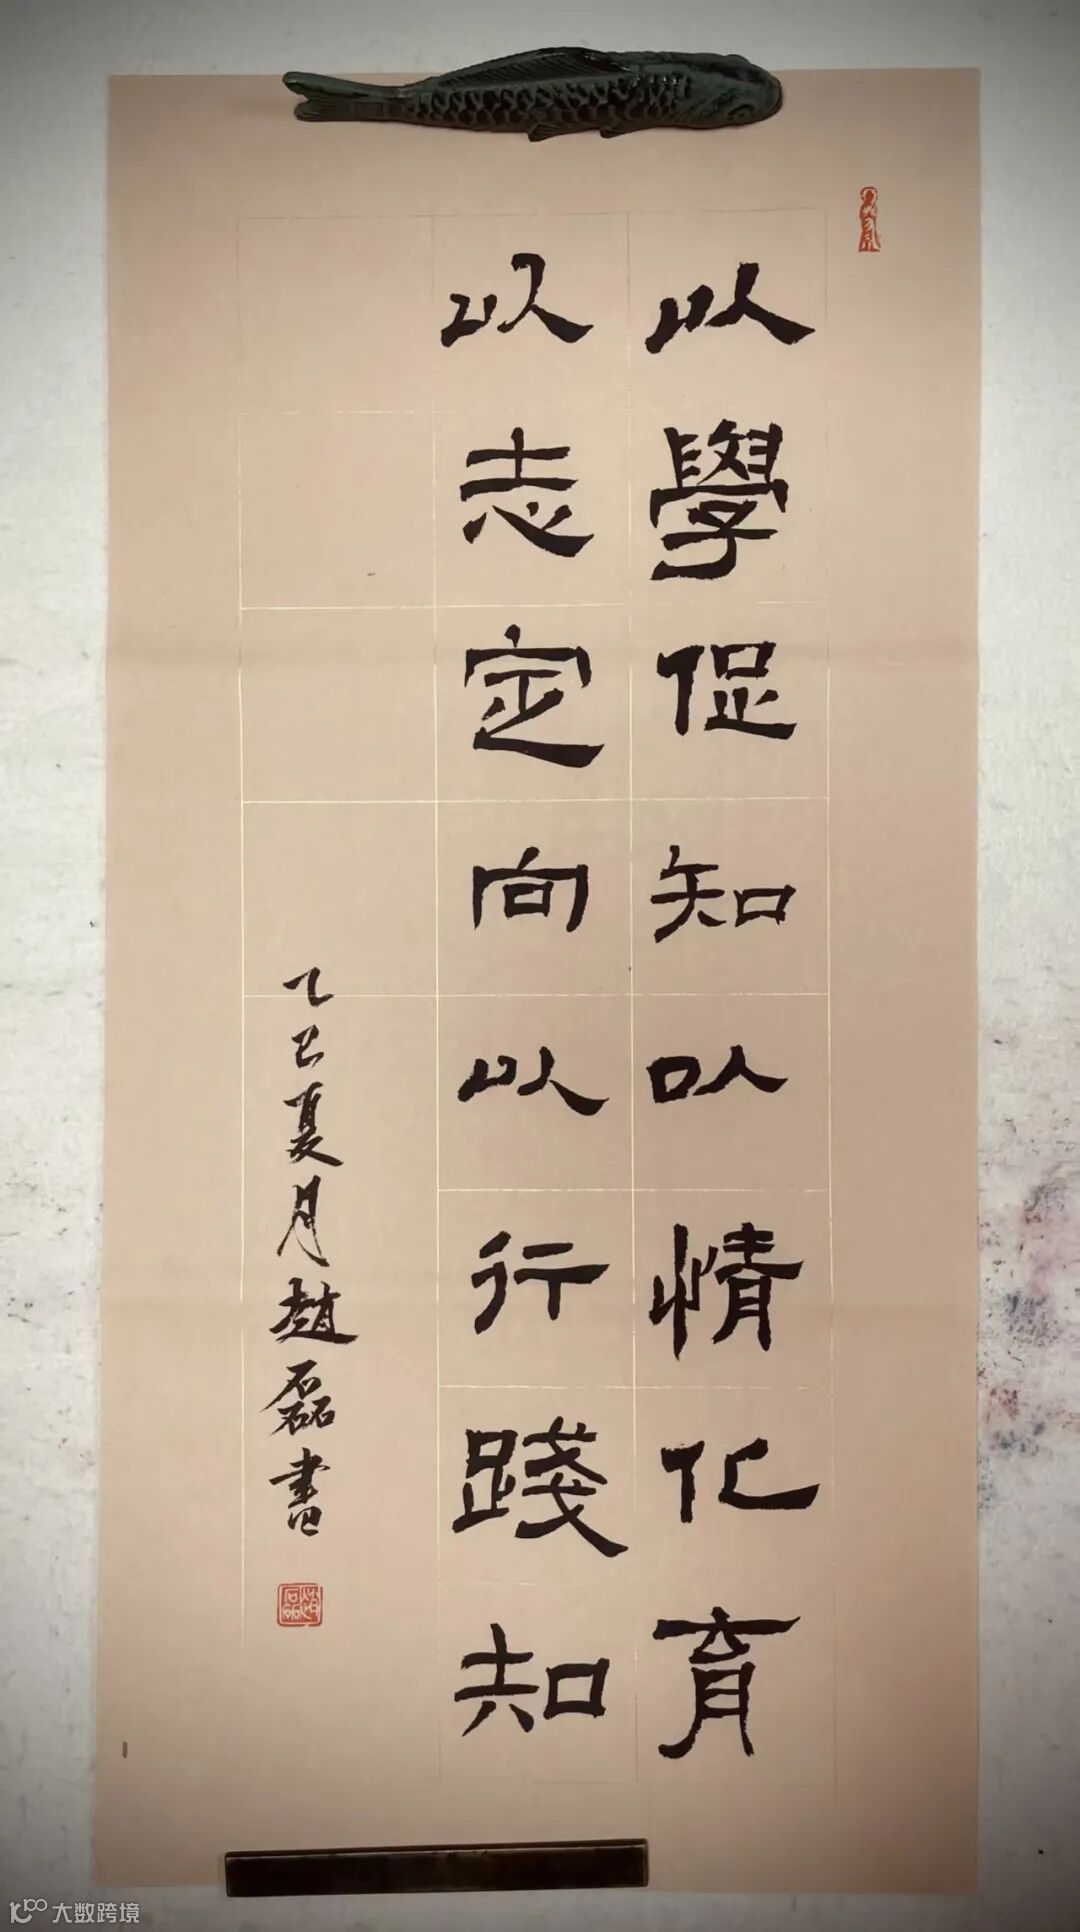 以學促知以情化育
以志定向以行踐知
乙巳夏月趙磊書
趙磊
大数跨境